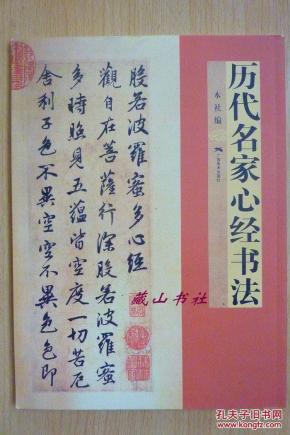 历代名家心经书法
本社编
广西美术出版社
般若波羅蜜多心經
觀自在菩薩行深般若波羅蜜
多時照見五蘊皆空度一切苦厄
舍利子色不異空空不異色色即
藏山书社
孔夫子旧书网